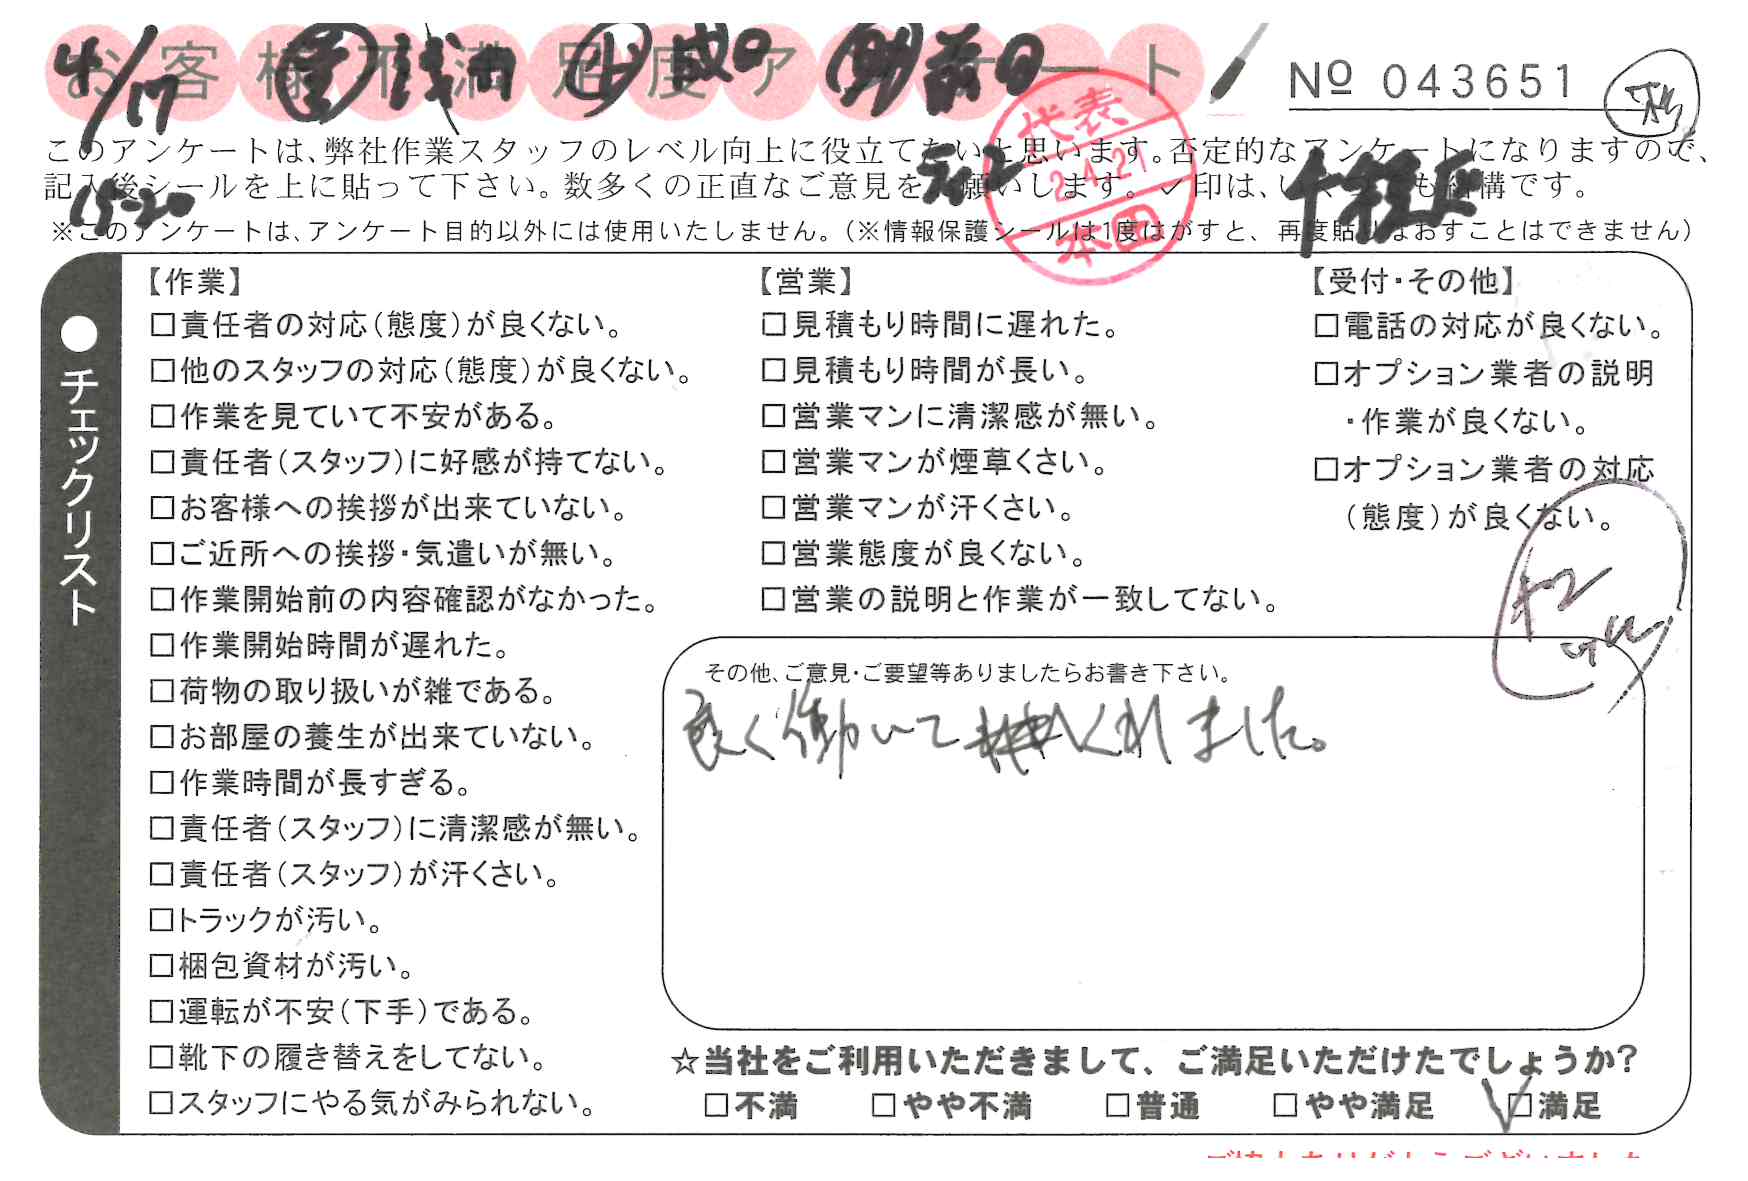 お客様不満足度アンケート
4/17
№ 043651
このアンケートは、弊社作業スタッフのレベル向上に役立てたいと思います。否定的なアンケートになりますので、
記入後シールを上に貼って下さい。数多くの正直なご意見をお願いします。✓印は、いくつでも結構です。
15-20
※このアンケートは、アンケート目的以外には使用いたしません。(※情報保護シールは1度はがすと、再度貼りなおすことはできません)
代表
2.4.21
本田
●チェックリスト
【作業】
□責任者の対応(態度)が良くない。
□他のスタッフの対応(態度)が良くない。
□作業を見ていて不安がある。
□責任者(スタッフ)に好感が持てない。
□お客様への挨拶が出来ていない。
□ご近所への挨拶・気遣いが無い。
□作業開始前の内容確認がなかった。
□作業開始時間が遅れた。
□荷物の取り扱いが雑である。
□お部屋の養生が出来ていない。
□作業時間が長すぎる。
□責任者(スタッフ)に清潔感が無い。
□責任者(スタッフ)が汗くさい。
□トラックが汚い。
□梱包資材が汚い。
□運転が不安(下手)である。
□靴下の履き替えをしてない。
□スタッフにやる気がみられない。
【営業】
□見積もり時間に遅れた。
□見積もり時間が長い。
□営業マンに清潔感が無い。
□営業マンが煙草くさい。
□営業マンが汗くさい。
□営業態度が良くない。
□営業の説明と作業が一致してない。
【受付・その他】
□電話の対応が良くない。
□オプション業者の説明
・作業が良くない。
□オプション業者の対応
(態度)が良くない。
その他、ご意見・ご要望等ありましたらお書き下さい。
良く働いてくれました。
☆当社をご利用いただきまして、ご満足いただけたでしょうか?
□不満 □やや不満 □普通 □やや満足 ☑満足